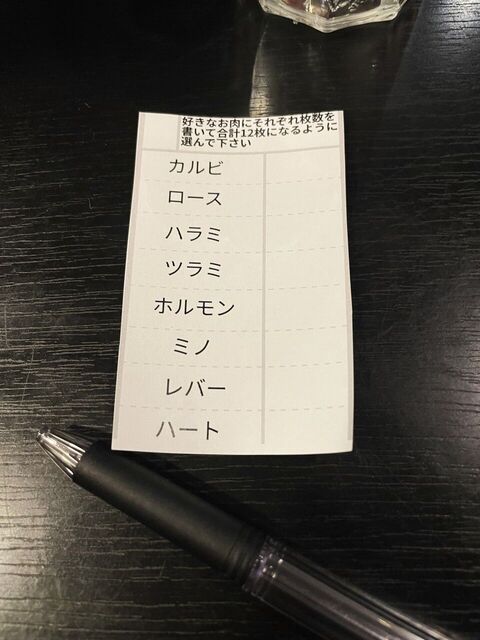 好きなお肉にそれぞれ枚数を
書いて合計12枚になるように
選んで下さい
カルビ
ロース
ハラミ
ツラミ
ホルモン
ミノ
レバー
ハート